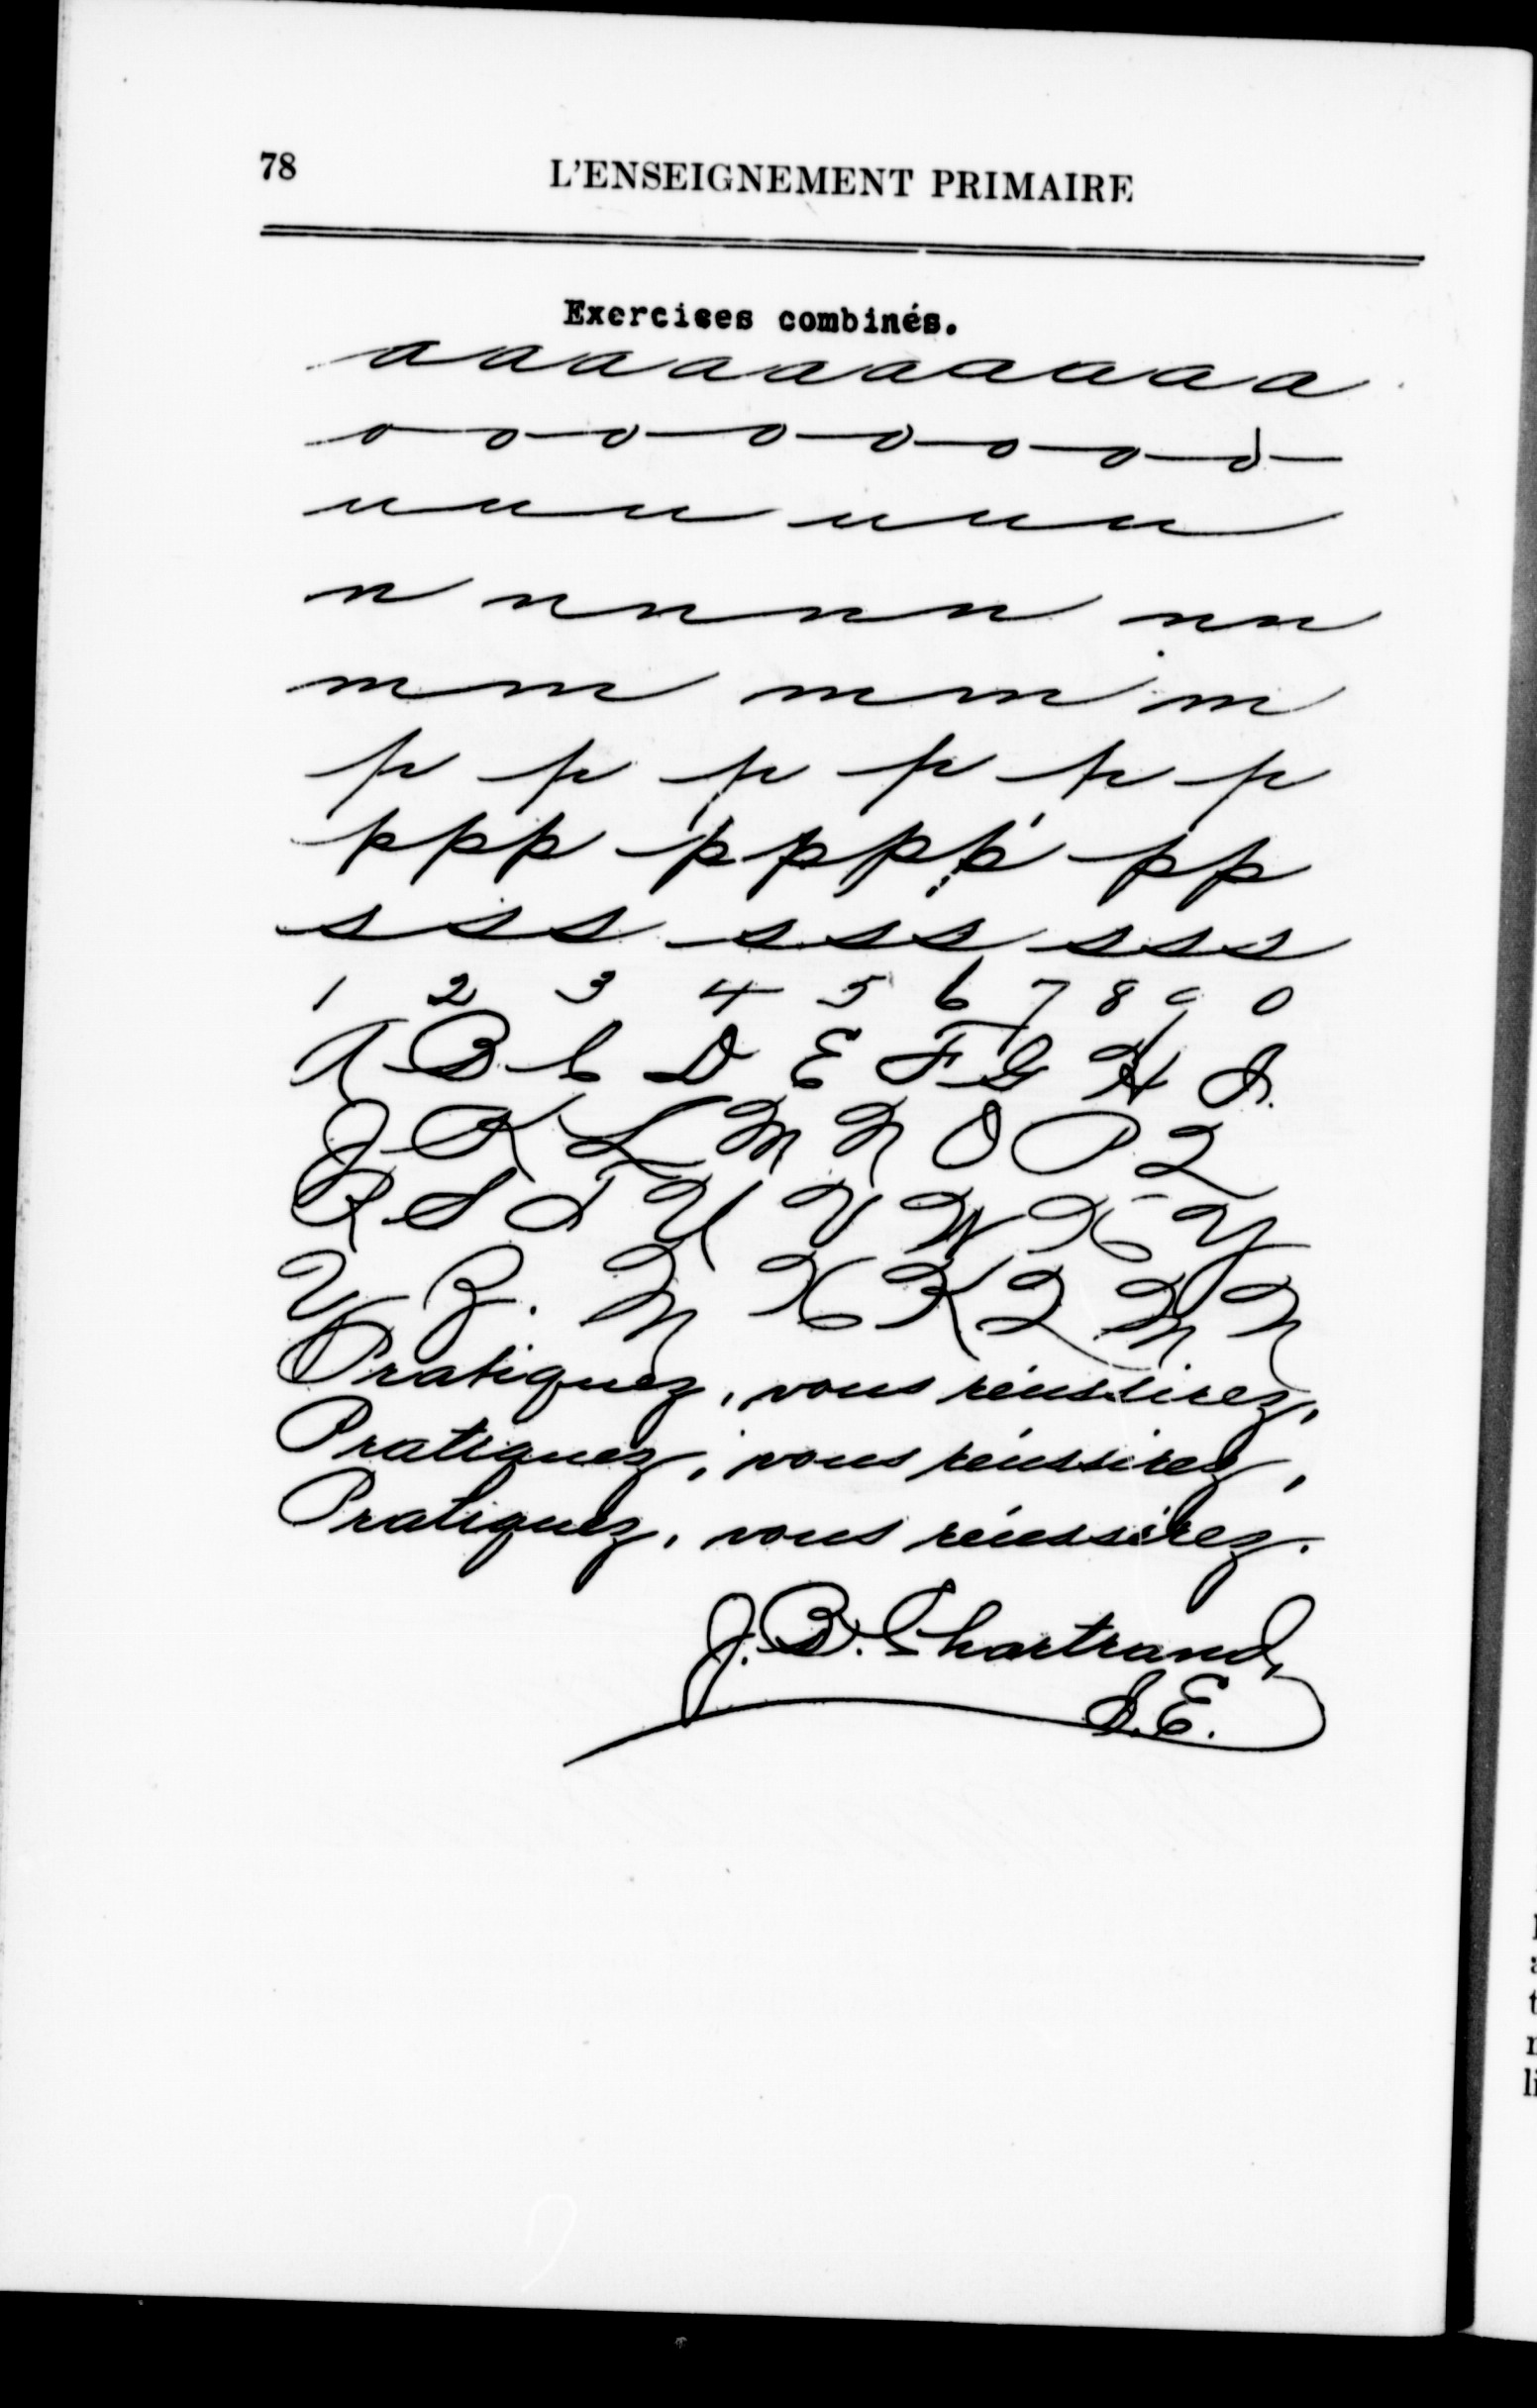 78 L'ENSEIGNEMENT PRIMAIRE
Exercises combinés.
a a a a a a a a a a
o o o o o o o o
u u u u u u
n n n n n n n n
m m m m m
p p p p p p
p p p p p p p p p
s s s s s s s s s
1 2 3 4 5 6 7 8 9 0
A B C D E F G H I
J K L M N O P Q
R S T U V W X Y
V Z. M X K Q M N
Pratiquez, vous réussirez,
Pratiquez, vous réussirez,
Pratiquez, vous réussirez.
J. B. Chartrand,
I. E.